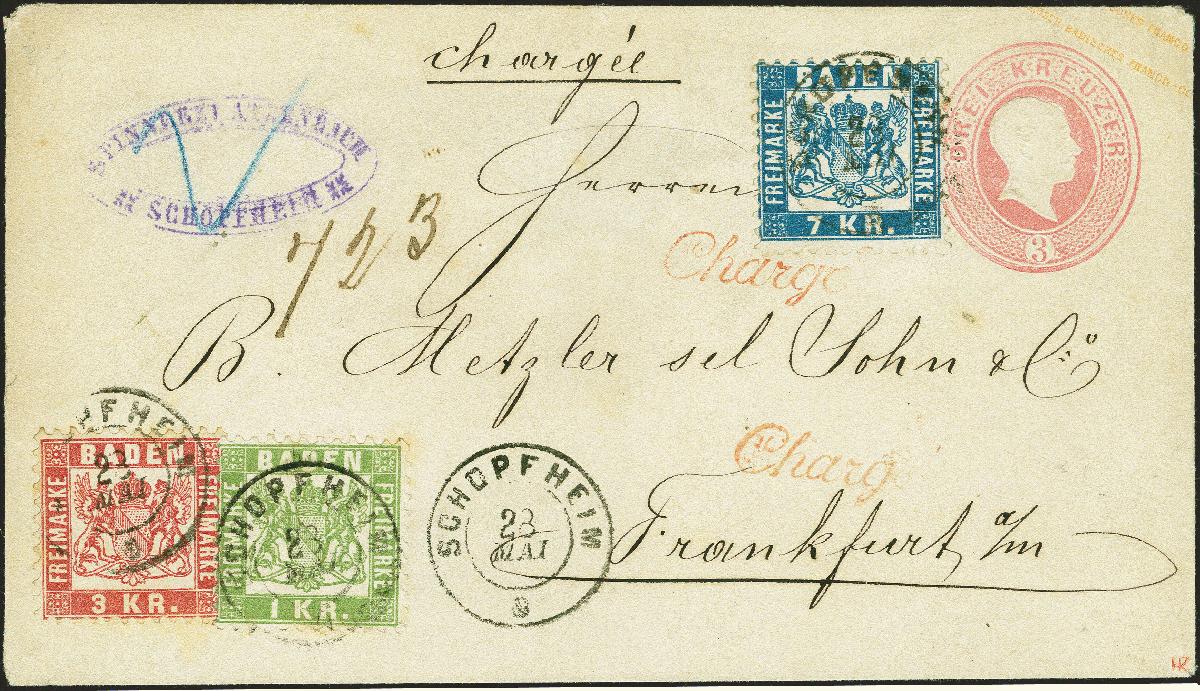 chargée
BADEN
FREIMARKE
FREIMARKE
7 KR.
DREI KREUZER
3
SCHOPFHEIM
723
Herren
Charge
B. Metzler sel Sohn & Co
Charg
Frankfurt a/m
BADEN
FREIMARKE
FREIMARKE
3 KR.
BADEN
FREIMARKE
1 KR.
SCHOPFHEIM
23
MAI
SCHOPFHEIM
23
MAI
SCHOPFHEIM
23
MAI